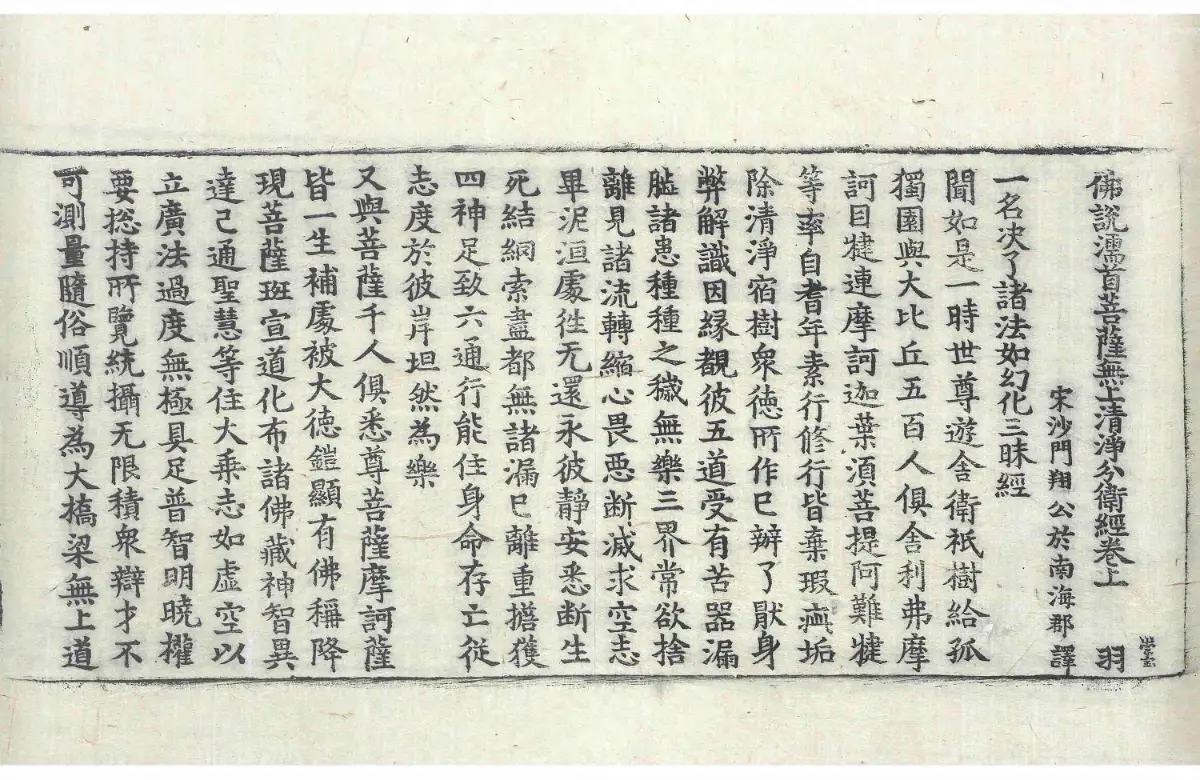 佛說濡首菩薩無上清淨分衛經卷上 羽
宋沙門翔公於南海郡譯
一名决了諸法如幻化三昧經
聞如是一時世尊遊舍衛祇樹給孤
獨園與大比丘五百人俱舍利弗摩
訶目犍連摩訶迦葉須菩提阿難犍
等率自耆年素行修行皆棄瑕疵垢
除清淨宿樹衆德所作已辦了猒身
弊解識因縁覩彼五道受有苦器漏
諸患種種之穢無樂三界常欲捨
離見諸流轉縮心畏惡断滅求空志
畢泥洹處徃无還永彼靜安悉断生
死結網索盡都無諸漏已離重擔獲
四神足致六通行能住身命存亡從
志度於彼岸坦然為樂
又與菩薩千人俱悉尊菩薩摩訶薩
皆一生補處被大德鎧顯有佛稱降
現菩薩班宣道化布諸佛藏神智異
達已通聖慧等住大乘志如虛空以
立廣法過度無極具足普智明曉權
要捴持所覽統攝无限積衆辯才不
可測量隨俗順導為大橋梁無上道